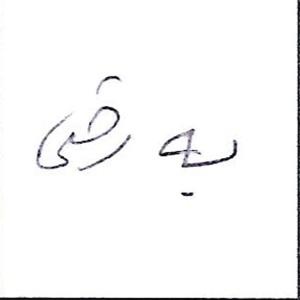 به رضی